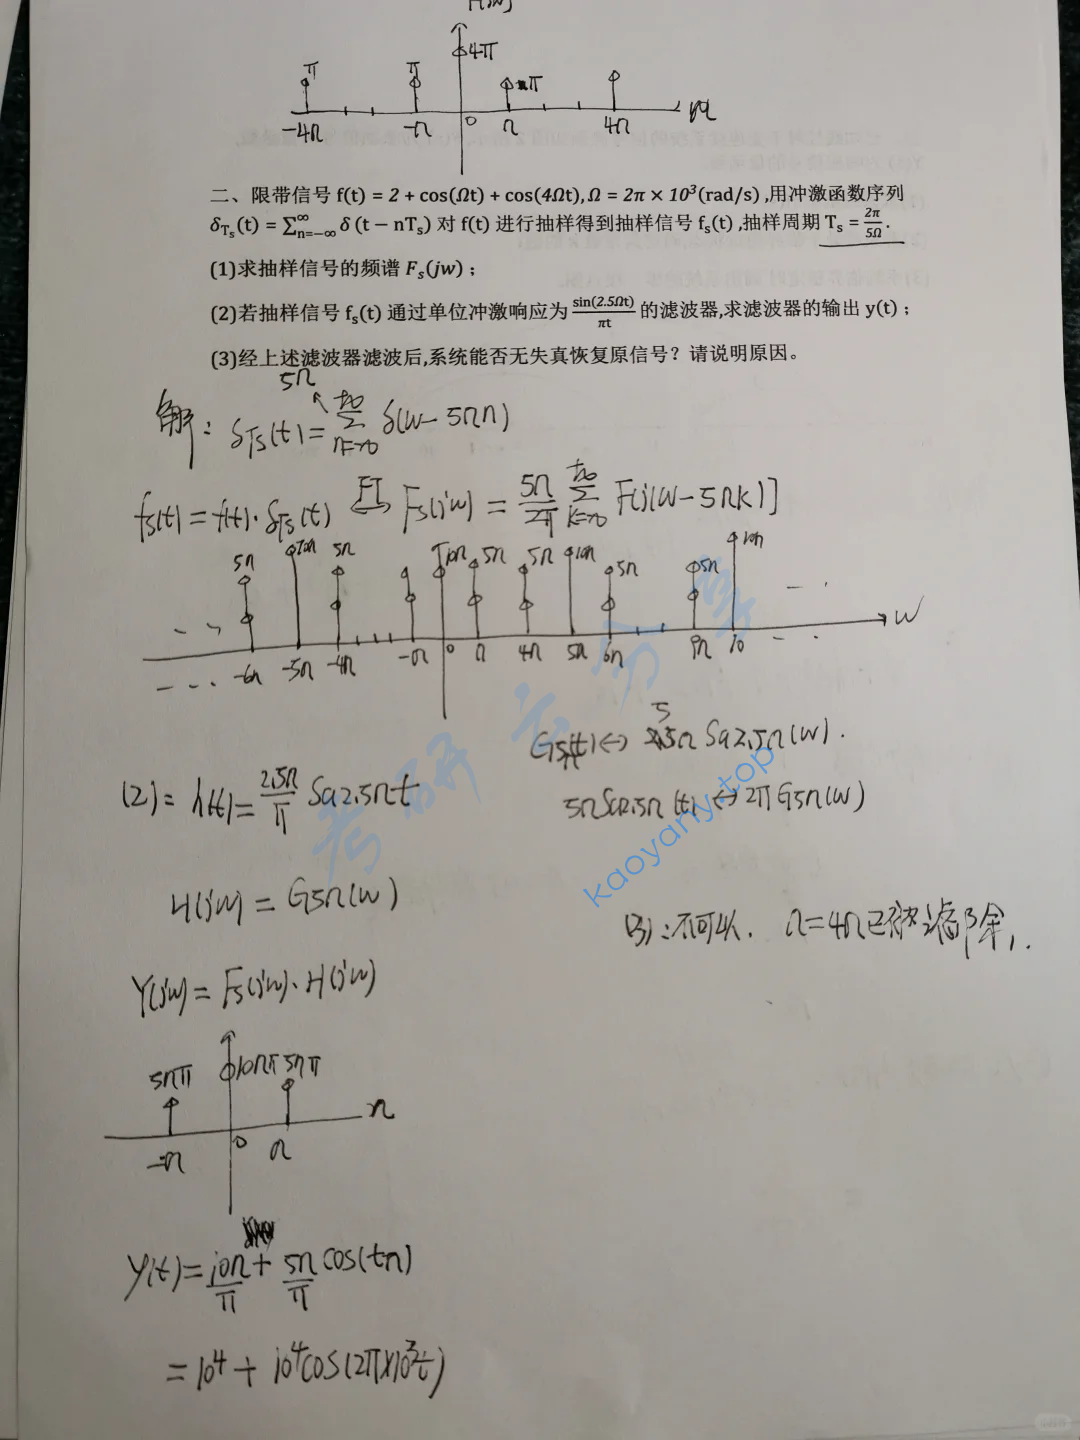 4π
π
π
π
-4Ω
-Ω
0
Ω
4Ω
二、限带信号 f(t) = 2 + cos(Ωt) + cos(4Ωt), Ω = 2π × 10³(rad/s) ,用冲激函数序列
δ_Ts(t) = ∑_{n=-∞}^{∞} δ (t − nTs) 对 f(t) 进行抽样得到抽样信号 fs(t) ,抽样周期 Ts = 2π/5Ω.
(1)求抽样信号的频谱 Fs(jw)；
(2)若抽样信号 fs(t) 通过单位冲激响应为 sin(2.5Ωt)/πt 的滤波器,求滤波器的输出 y(t)；
(3)经上述滤波器滤波后,系统能否无失真恢复原信号？请说明原因。
5Ω
解：δTs(t) = ∑ δ(w − 5Ωn)
fs(t) = f(t)·δTs(t) FT Fs(jw) = 5Ω/2π ∑ F[j(w − 5Ωk)]
5Ω 10Ω 5Ω 10Ω 5Ω 5Ω 10Ω 5Ω 5Ω 10Ω
w
-6Ω -5Ω -4Ω -Ω 0 Ω 4Ω 5Ω 6Ω 9Ω 10
5Ω Sa2.5Ω(w).
(2)= h(t) = 2.5Ω/π Sa2.5Ωt
5ΩSa2.5Ω(t) ↔ 2πG5Ω(w)
H(jw) = G5Ω(w)
(3)：不可以. Ω=4Ω已被滤除,.
Y(jw) = Fs(jw)·H(jw)
5Ωπ 10Ωπ 5Ωπ
-Ω 0 Ω
Ω
y(t) = 10Ω/π + 5Ω/π cos(tΩ)
= 10⁴ + 10⁴cos(2π×10³t)
考研云分享
kaoyany.top